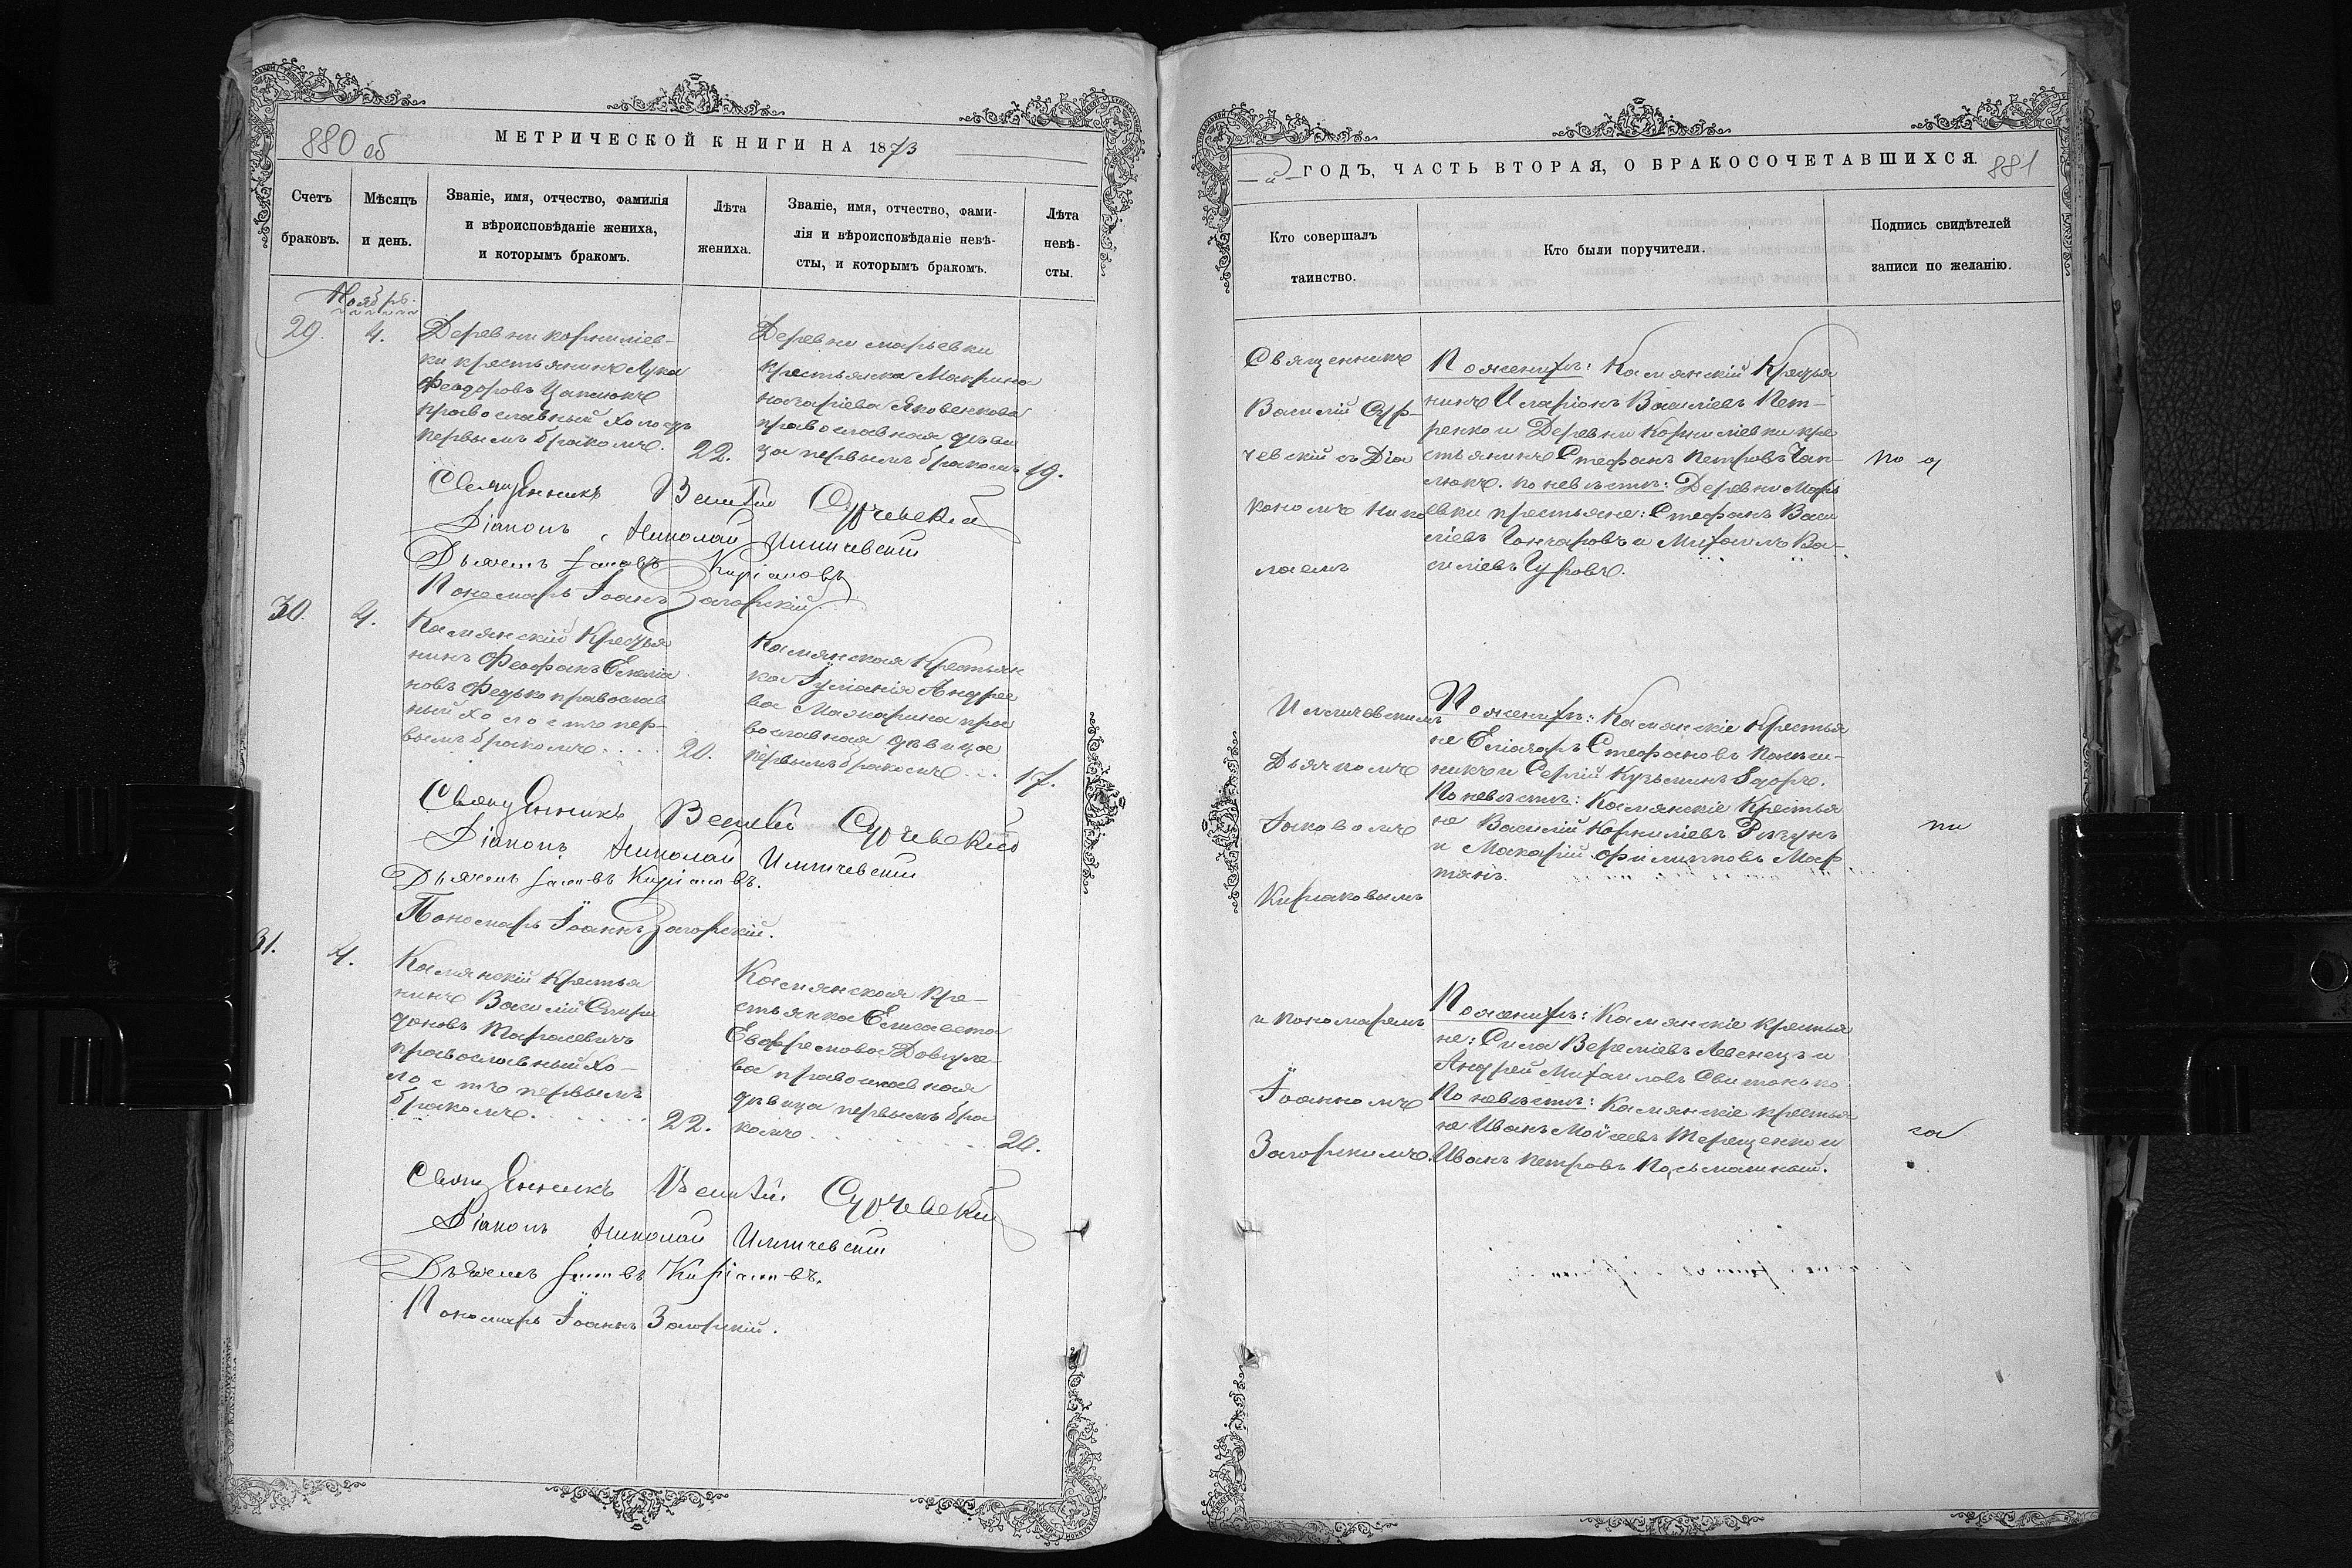 880 об
МЕТРИЧЕСКОЙ КНИГИ НА 1873
Счетъ браковъ.
Мѣсяцъ и день.
Званіе, имя, отчество, фамилія
и вѣроисповѣданіе жениха,
и которымъ бракомъ.
Лѣта жениха.
Званіе, имя, отчество, фами-
лія и вѣроисповѣданіе невѣ-
сты, и которымъ бракомъ.
Лѣта невѣ-
сты.
Ноябрь.
29.
4.
Деревни Корниліев-
ки крестьянинъ Лука
Феодоровъ Цаплюкъ
православный холостъ
первымъ бракомъ.
22.
Деревни Марьевки
крестьянка Макрина
Назаріева Яковенкова
православная дѣви
ца первымъ бракомъ
19.
Священникъ Василій Сурчевскій
Діаконъ Николай Илличевскій
Дьячекъ Іаковъ Киріаковъ
Пономарь Іоаннъ Загорскій
30.
4.
Камянскій Крестья
нинъ Феофанъ Емелiа
новъ Федько православ
ный холостъ пер-
вымъ бракомъ....
20.
Камянская Крестьян
ка Іуліанія Андрее
ва Макарина пра
вославная дѣвица
первымъ бракомъ...
17.
Священникъ Василій Сурчевскій
Діаконъ Николай Илличевскій
Дьячекъ Іаковъ Киріаковъ.
Пономарь Іоаннъ Загорскій.
31.
4.
Камянскій Крестья
нинъ Василій Спири
доновъ Тарасевичъ
православный хо-
лостъ первымъ
бракомъ......
22.
Камянская кре-
стьянка Елисавета
Евфремова
ва православная
дѣвица первымъ бра
комъ
20.
Священникъ Василій Сурчевскій
Діаконъ Николай Илличевскій
Дьячекъ Іаковъ Киріаковъ.
Пономарь Іоаннъ Загорскій.
й ГОДЪ, ЧАСТЬ ВТОРАЯ, О БРАКОСОЧЕТАВШИХСЯ.
881
Кто совершалъ
таинство.
Кто были поручители.
Подпись свидѣтелей
записи по желанію.
Священникъ
Василій Сур-
чевскій съ Діа
кономъ Нико
лаемъ
Илличевскимъ
Дьячкомъ
Іаковомъ
Киріаковымъ
и пономаремъ
Іоанномъ
Загорскимъ.
По женихѣ: Камянскій Крестья
нинъ Иларіонъ Василіевъ Пет-
ренко и Деревни Корниліевки кре
стьянинъ Стефанъ Петровъ Цап-
люкъ. по невѣстѣ: Деревни Марь
евки крестьяне: Стефанъ Васи
ліевъ Гончаровъ и Михаилъ Ва-
силіевъ Гуровъ.
По женихѣ: Камянскіе Крестья
не Еліазаръ Стефановъ
никъ и Сергій Кузьминъ Сидоръ.
По невѣстѣ: Камянскіе Крестья
не Василій Корниліевъ
и Макарій Филипповъ Мар
По женихѣ: Камянскіе крестья
не: Сила Веремiевъ Левенецъ и
Андрей Михаиловъ Свитонько
По невѣстѣ: Камянскіе крестья
не Иванъ Моисеевъ Терещенко и
Иванъ Петровъ
по д
пи
са